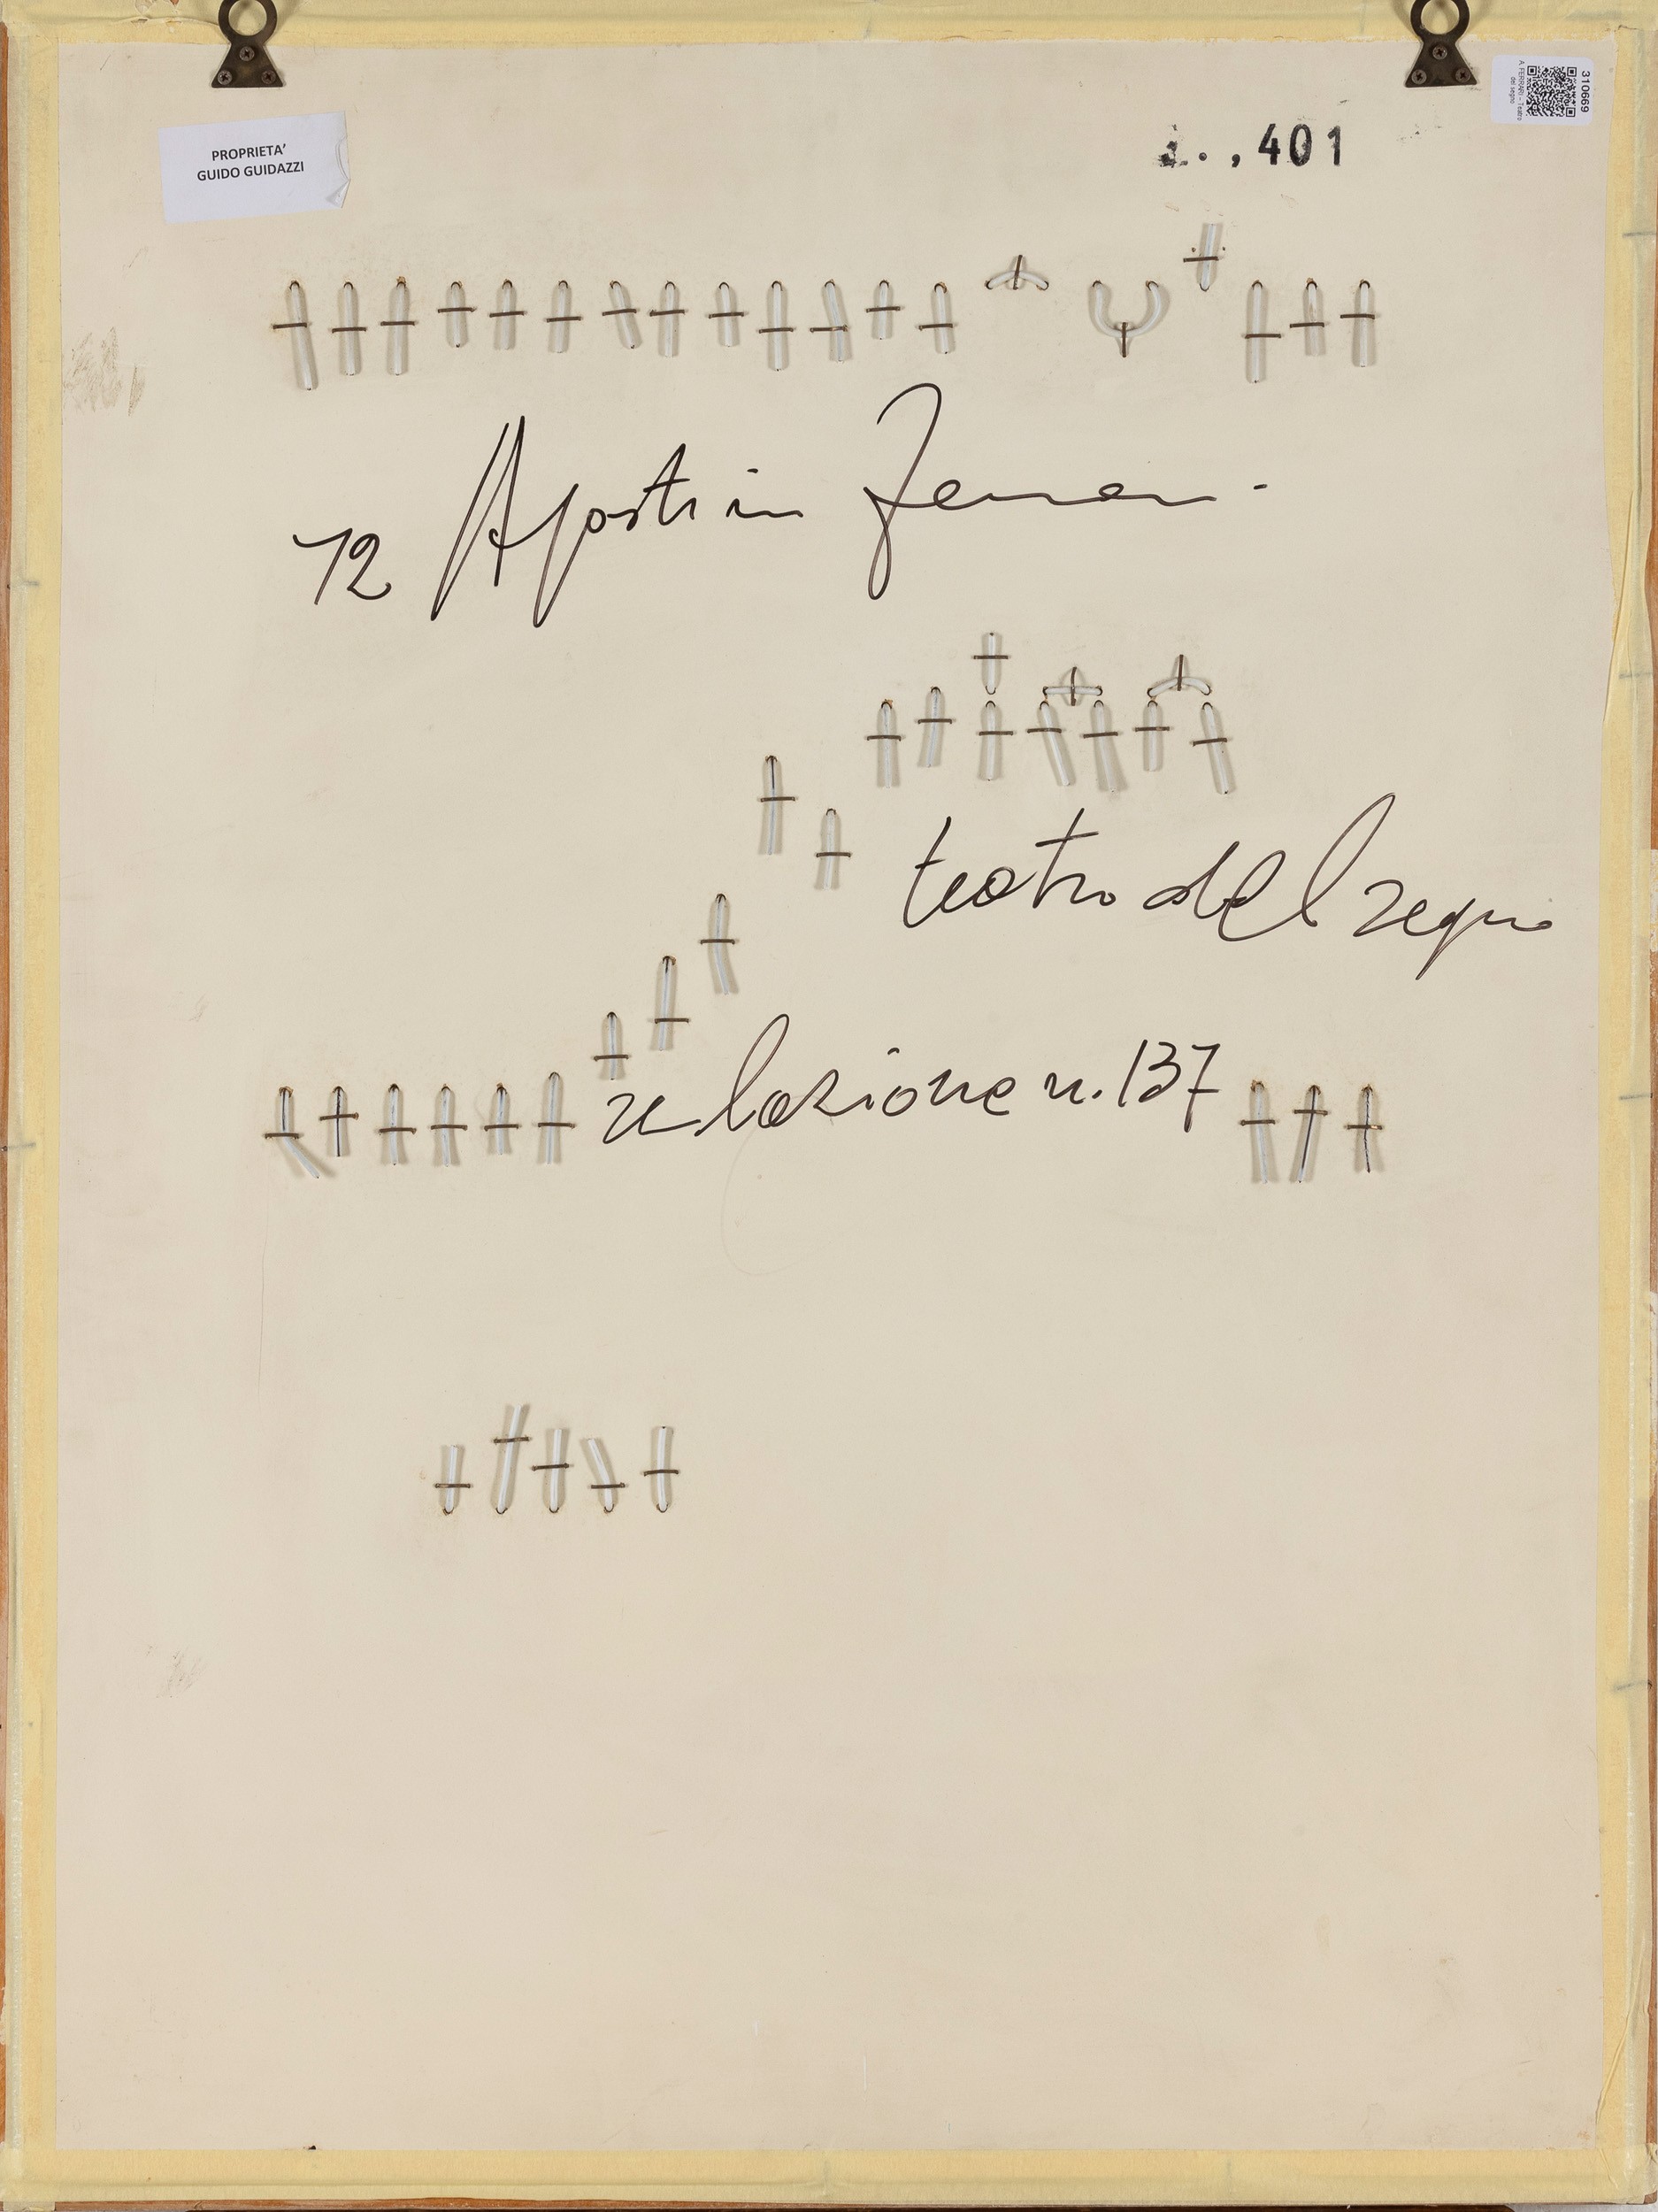 310669
A. FERRARI - Teatro
del segno
PROPRIETA'
GUIDO GUIDAZZI
401
72 Agostin Ferrari
teatro del segno
relazione n. 137